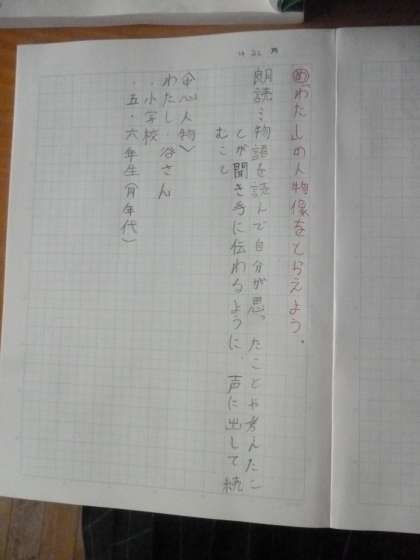 4 22 月
め わたしの人物像をとらえよう。
朗読…物語を読んで自分が思ったことや考えたこ
とが聞き手に伝わるように、声に出して続
むこと
(中心人物)
わたし 谷さん
・小学校
・五・六年生(同年代)